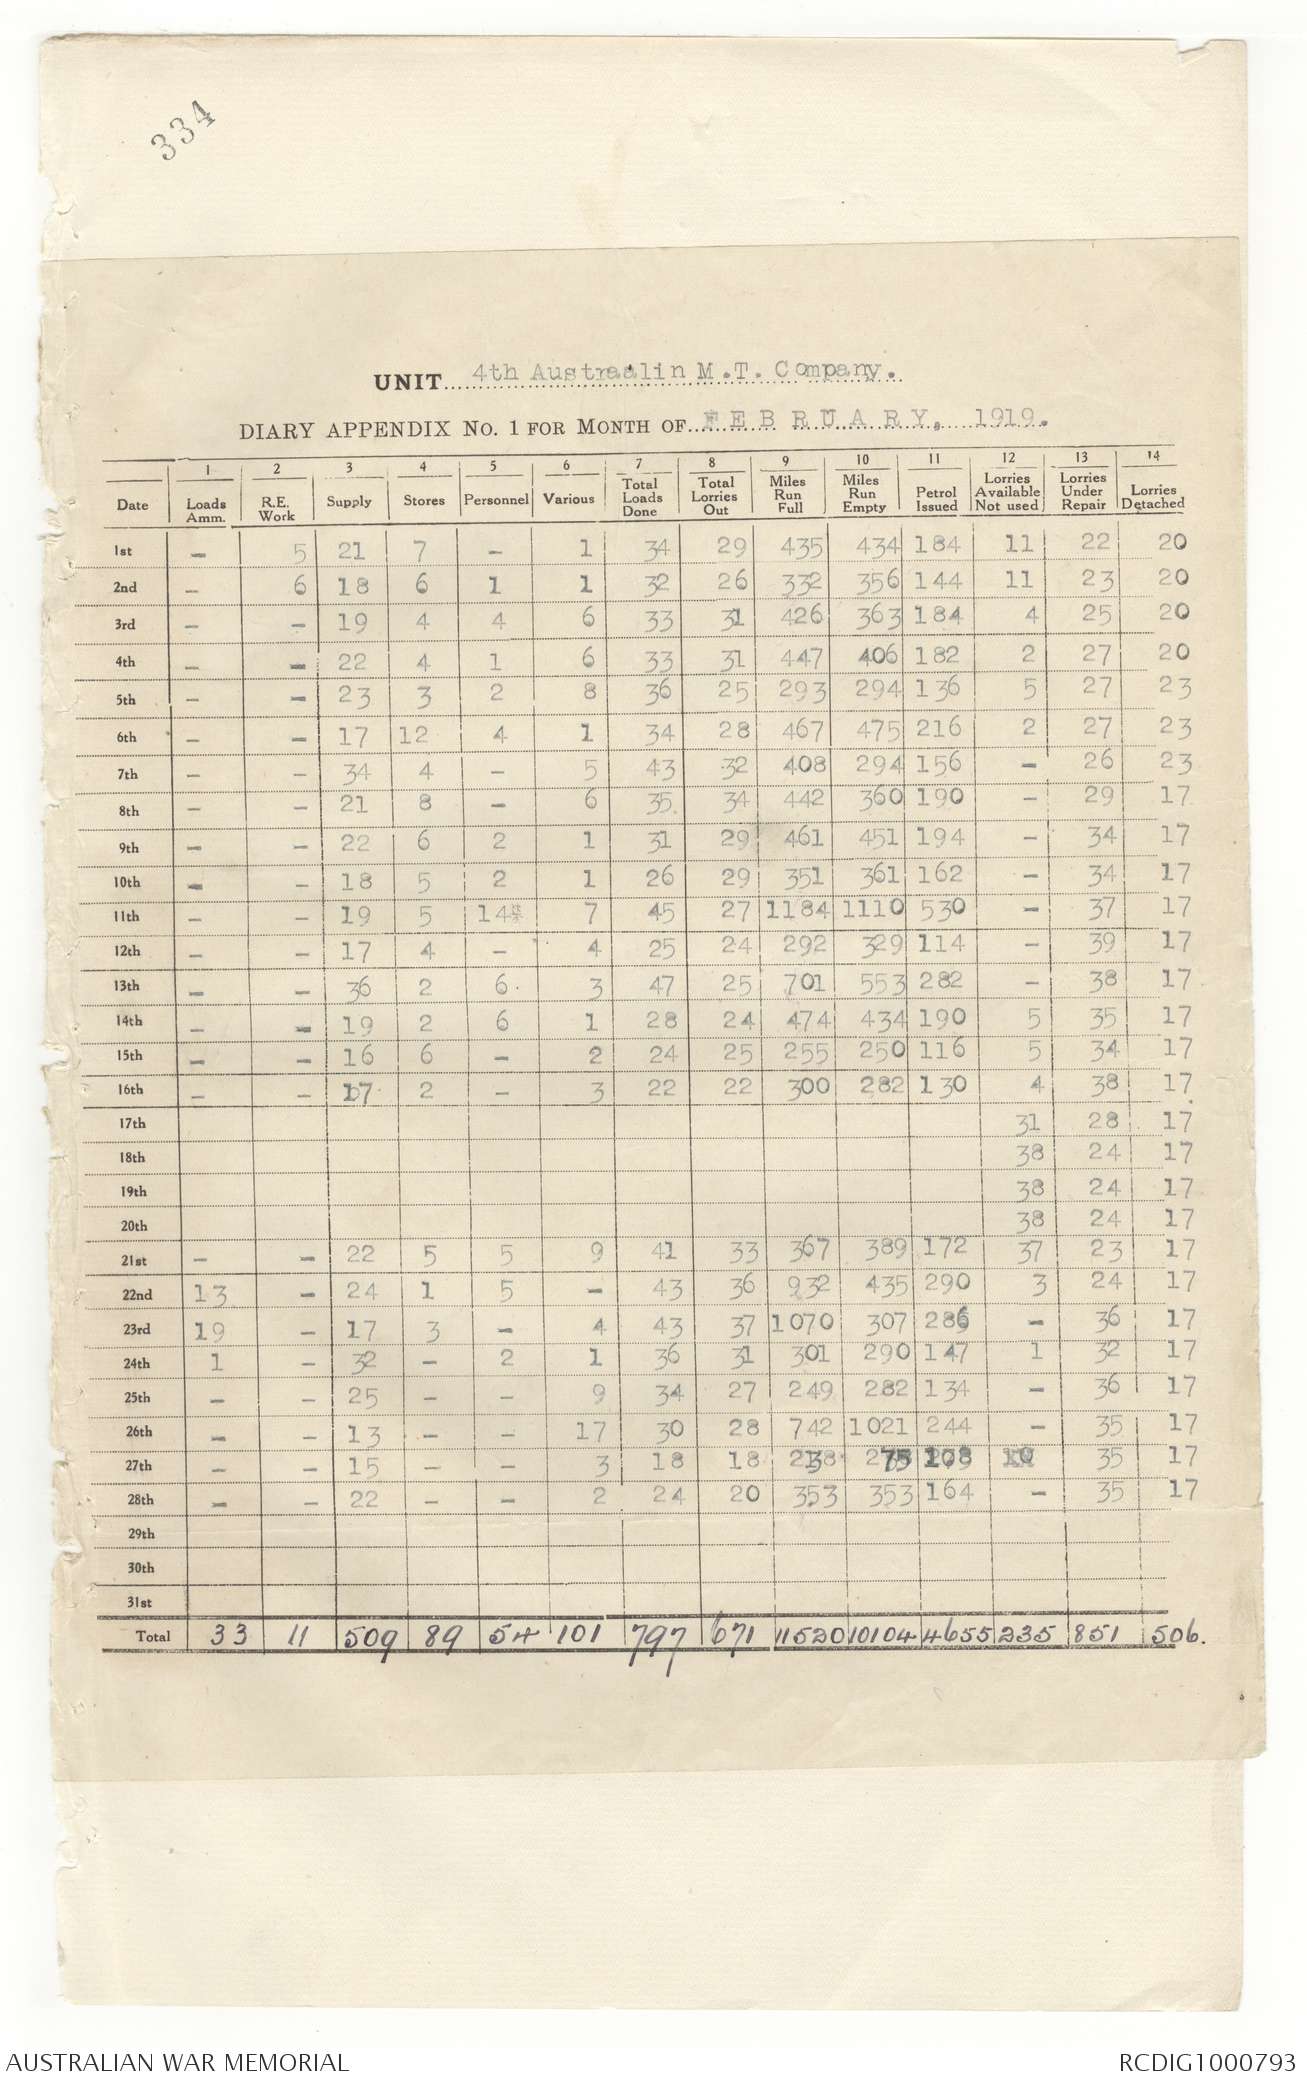 334
UNIT 4th Austraalin M.T. Company.
DIARY APPENDIX No. 1 FOR MONTH OF FEBRUARY, 1919.
1 2 3 4 5 6 7 8 9 10 11 12 13 14
Date Loads Ammn. R.E. Work Supply Stores Personnel Various Total Loads Done Total Lorries Out Miles Run Full Miles Run Empty Petrol Issued Lorries Available Not used Lorries Under Repair Lorries Detached
1st - 5 21 7 - 1 34 29 435 434 184 11 22 20
2nd - 6 18 6 1 1 32 26 332 356 144 11 23 20
3rd - - 19 4 4 6 33 31 426 363 184 4 25 20
4th - - 22 4 1 6 33 31 447 406 182 2 27 20
5th - - 23 3 2 8 36 25 293 294 136 5 27 23
6th - - 17 12 4 1 34 28 467 475 216 2 27 23
7th - - 34 4 - 5 43 32 408 294 156 - 26 23
8th - - 21 8 - 6 35 34 442 360 190 - 29 17
9th - - 22 6 2 1 31 29 461 451 194 - 34 17
10th - - 18 5 2 1 26 29 351 361 162 - 34 17
11th - - 19 5 14 7 45 27 1184 1110 530 - 37 17
12th - - 17 4 - 4 25 24 292 329 114 - 39 17
13th - - 36 2 6 3 47 25 701 553 282 - 38 17
14th - - 19 2 6 1 28 24 474 434 190 5 35 17
15th - - 16 6 - 2 24 25 255 250 116 5 34 17
16th - - 17 2 - 3 22 22 300 282 130 4 38 17
17th 31 28 17
18th 38 24 17
19th 38 24 17
20th 38 24 17
21st - - 22 5 5 9 41 33 367 389 172 37 23 17
22nd 13 - 24 1 5 - 43 36 932 435 290 3 24 17
23rd 19 - 17 3 - 4 43 37 1070 307 286 - 36 17
24th 1 - 32 - 2 1 36 31 301 290 147 1 32 17
25th - - 25 - - 9 34 27 249 282 134 - 36 17
26th - - 13 - - 17 30 28 742 1021 244 - 35 17
27th - - 15 - - 3 18 18 108 35 17
28th - - 22 - - 2 24 20 353 353 164 - 35 17
29th
30th
31st
Total 33 11 509 89 54 101 797 671 11520 10104 4655 235 851 506.
AUSTRALIAN WAR MEMORIAL
RCDIG1000793